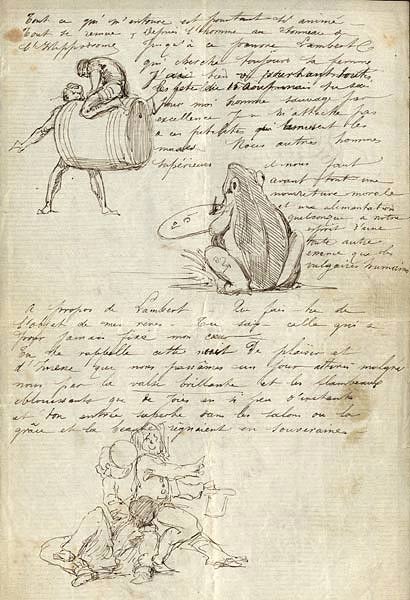 Tout ce qui m'entoure est pourtant si animé
Tout se remue, depuis l'homme au tonneau de
l'Hippodrome jusqu'à ce pauvre Lambert
qui cherche toujours sa femme
J'ai bien vu
les fêtes du 15 Août mais tu sais
pour moi homme sauvage par
excellence je ne m'attache pas
à ces qui amusent les
masses Nous autres hommes
supérieurs il nous faut
avant tout une
nourriture morale
et une alimentation
quelconque à notre
esprit d'une
toute autre
que les
vulgaires humains
A propos de Lambert Que fais tu de
l'objet de mes rêves Tu sais celle qui a
pour jamais fixé mon cœur
Tu me rappelle cette nuit De plaisir et
d'ivresse que nous passâmes un jour malgré
nous par la valse brillante et les flambeaux
éblouissants que de joies en si peu d'instants
et ton entrée superbe dans les salons ou la
grâce et la beauté régnaient en Souveraine